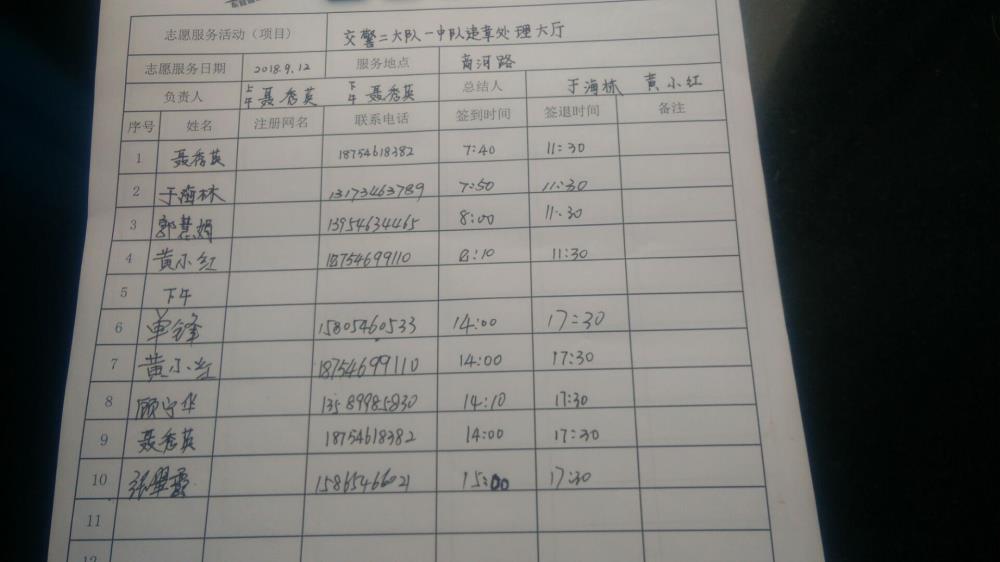 志愿服务活动（项目） 交警二大队一中队违章处理大厅
志愿服务日期 2018.9.12 服务地点 商河路
负责人 上午 聂秀英 下午 聂秀英 总结人 于海林 黄小红
序号 姓名 注册网名 联系电话 签到时间 签退时间 备注
1 聂秀英 18754618382 7:40 11:30
2 于海林 13173463789 7:50 11:30
3 郭慧娟 13954634465 8:00 11:30
4 黄小红 18754699110 8:10 11:30
5 下午
6 单锋 15805460533 14:00 17:30
7 黄小红 18754699110 14:00 17:30
8 顾宁华 13589985830 14:10 17:30
9 聂秀英 18754618382 14:00 17:30
10 张翠霞 15865466021 15:00 17:30
11
12